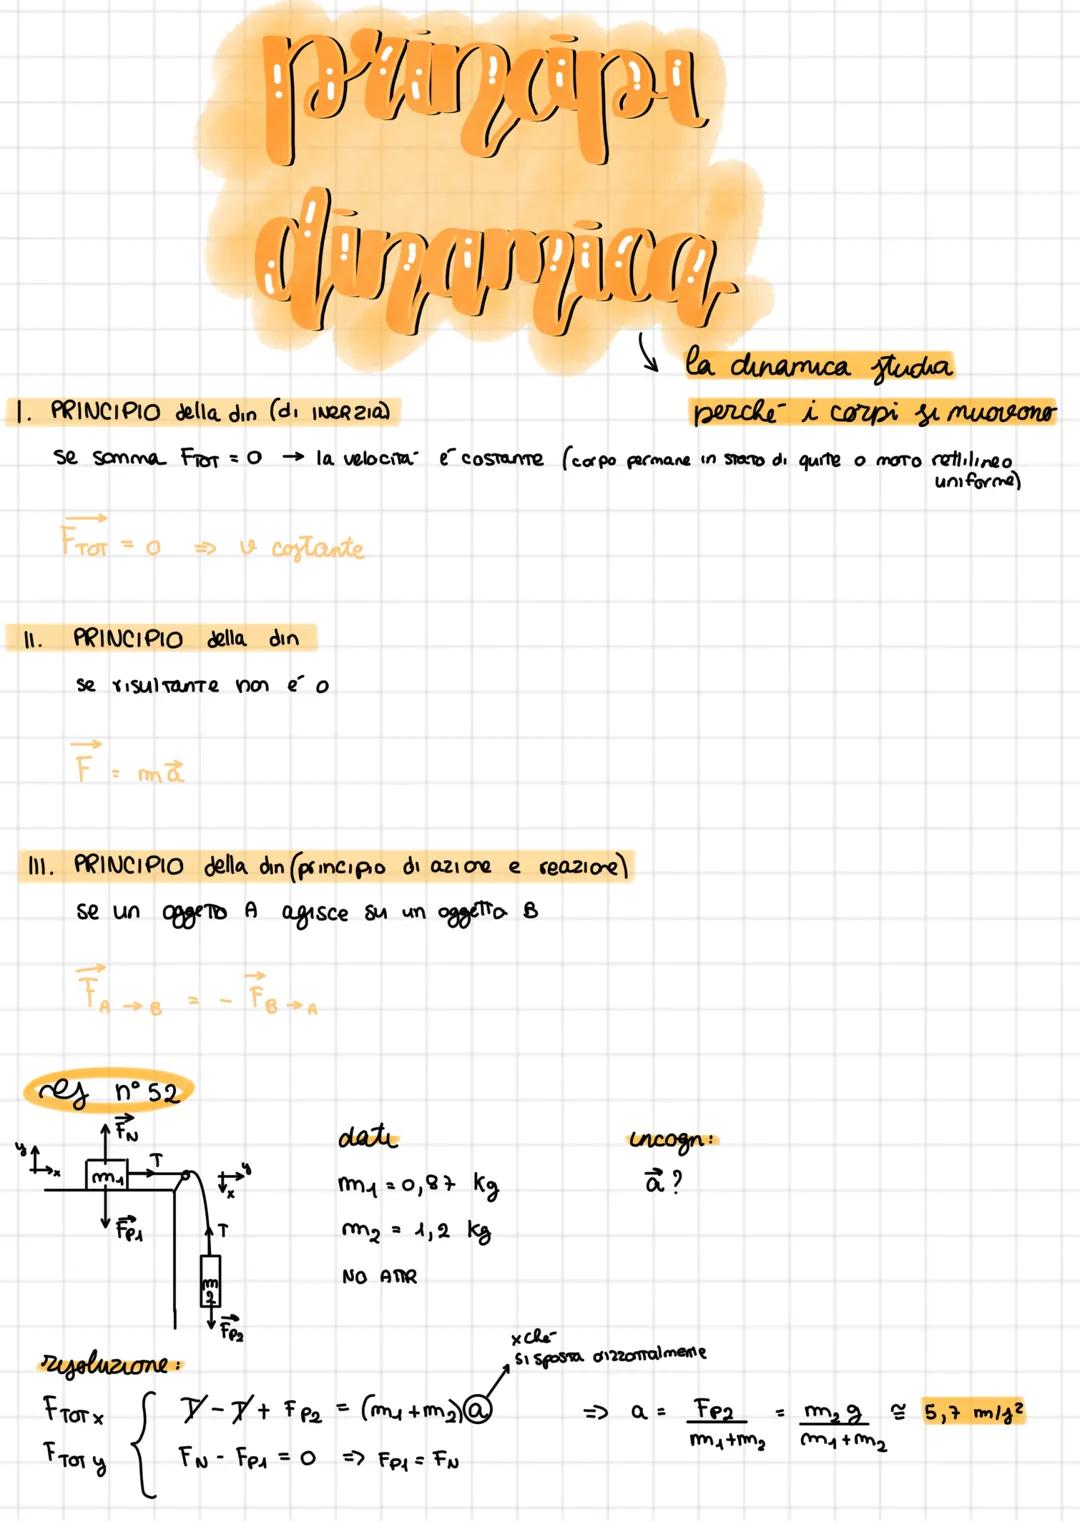 principi
dinamica
↓ la dinamica studia
perché i corpi si muovono
I. PRINCIPIO della din (di INERZIA)
se somma FTOT = 0 → la velocità é costante (corpo permane in stato di quite o moto rettilineo
uniforme)
FTOT = 0 ⇒ v costante
II. PRINCIPIO della din
se risultante non é 0
F = ma
III. PRINCIPIO della din (principio di azione e reazione)
se un oggeto A agisce su un oggetto B
FA→B = - FB→A
es n° 52
FN
y
x
m1
T
y
x
FP1
T
m2
FP2
dati
m1 = 0,87 kg
m2 = 1,2 kg
NO ATTR
incogn:
a ?
risoluzione:
xché
si sposta orizzontalmente
FTOT x T - T + FP2 = (m1+m2) a ⇒ a = FP2 / m1+m2 = m2g / m1+m2 ≅ 5,7 m/s²
FTOT y FN - FP1 = 0 => FP1 = FN